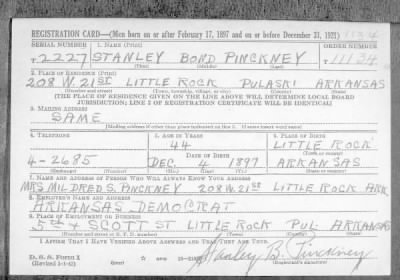 REGISTRATION CARD—(Men born on or after February 17, 1897 and on or before December 31, 1921)
SERIAL NUMBER 1. NAME (Print) ORDER NUMBER
T2227 STANLEY BOND PINCKNEY 11134
(First) (Middle) (Last)
2. PLACE OF RESIDENCE (Print)
208 W. 21ST LITTLE ROCK PULASKI ARKANSAS
(Number and street) (Town, township, village, or city) (County) (State)
[THE PLACE OF RESIDENCE GIVEN ON THE LINE ABOVE WILL DETERMINE LOCAL BOARD
JURISDICTION; LINE 2 OF REGISTRATION CERTIFICATE WILL BE IDENTICAL]
3. MAILING ADDRESS
SAME
[Mailing address if other than place indicated on line 2. If same insert word same]
4. TELEPHONE 5. AGE IN YEARS 6. PLACE OF BIRTH
44 LITTLE ROCK
DATE OF BIRTH (Town or county)
4-2685 DEC. 4 1897 ARKANSAS
(Mo.) (Day) (Yr.) (State or country)
7. NAME AND ADDRESS OF PERSON WHO WILL ALWAYS KNOW YOUR ADDRESS
MRS MILDRED S. PINCKNEY 208 W. 21ST LITTLE ROCK ARK
8. EMPLOYER'S NAME AND ADDRESS
ARKANSAS DEMOCRAT
9. PLACE OF EMPLOYMENT OR BUSINESS
5TH & SCOTT ST LITTLE ROCK PUL ARKANSAS
(Number and street or R. F. D. number) (Town) (County) (State)
I AFFIRM THAT I HAVE VERIFIED ABOVE ANSWERS AND THAT THEY ARE TRUE.
D. S. S. Form 1
(Revised 1-1-42) (over) Stanley B. Pinckney
(Registrant's signature)